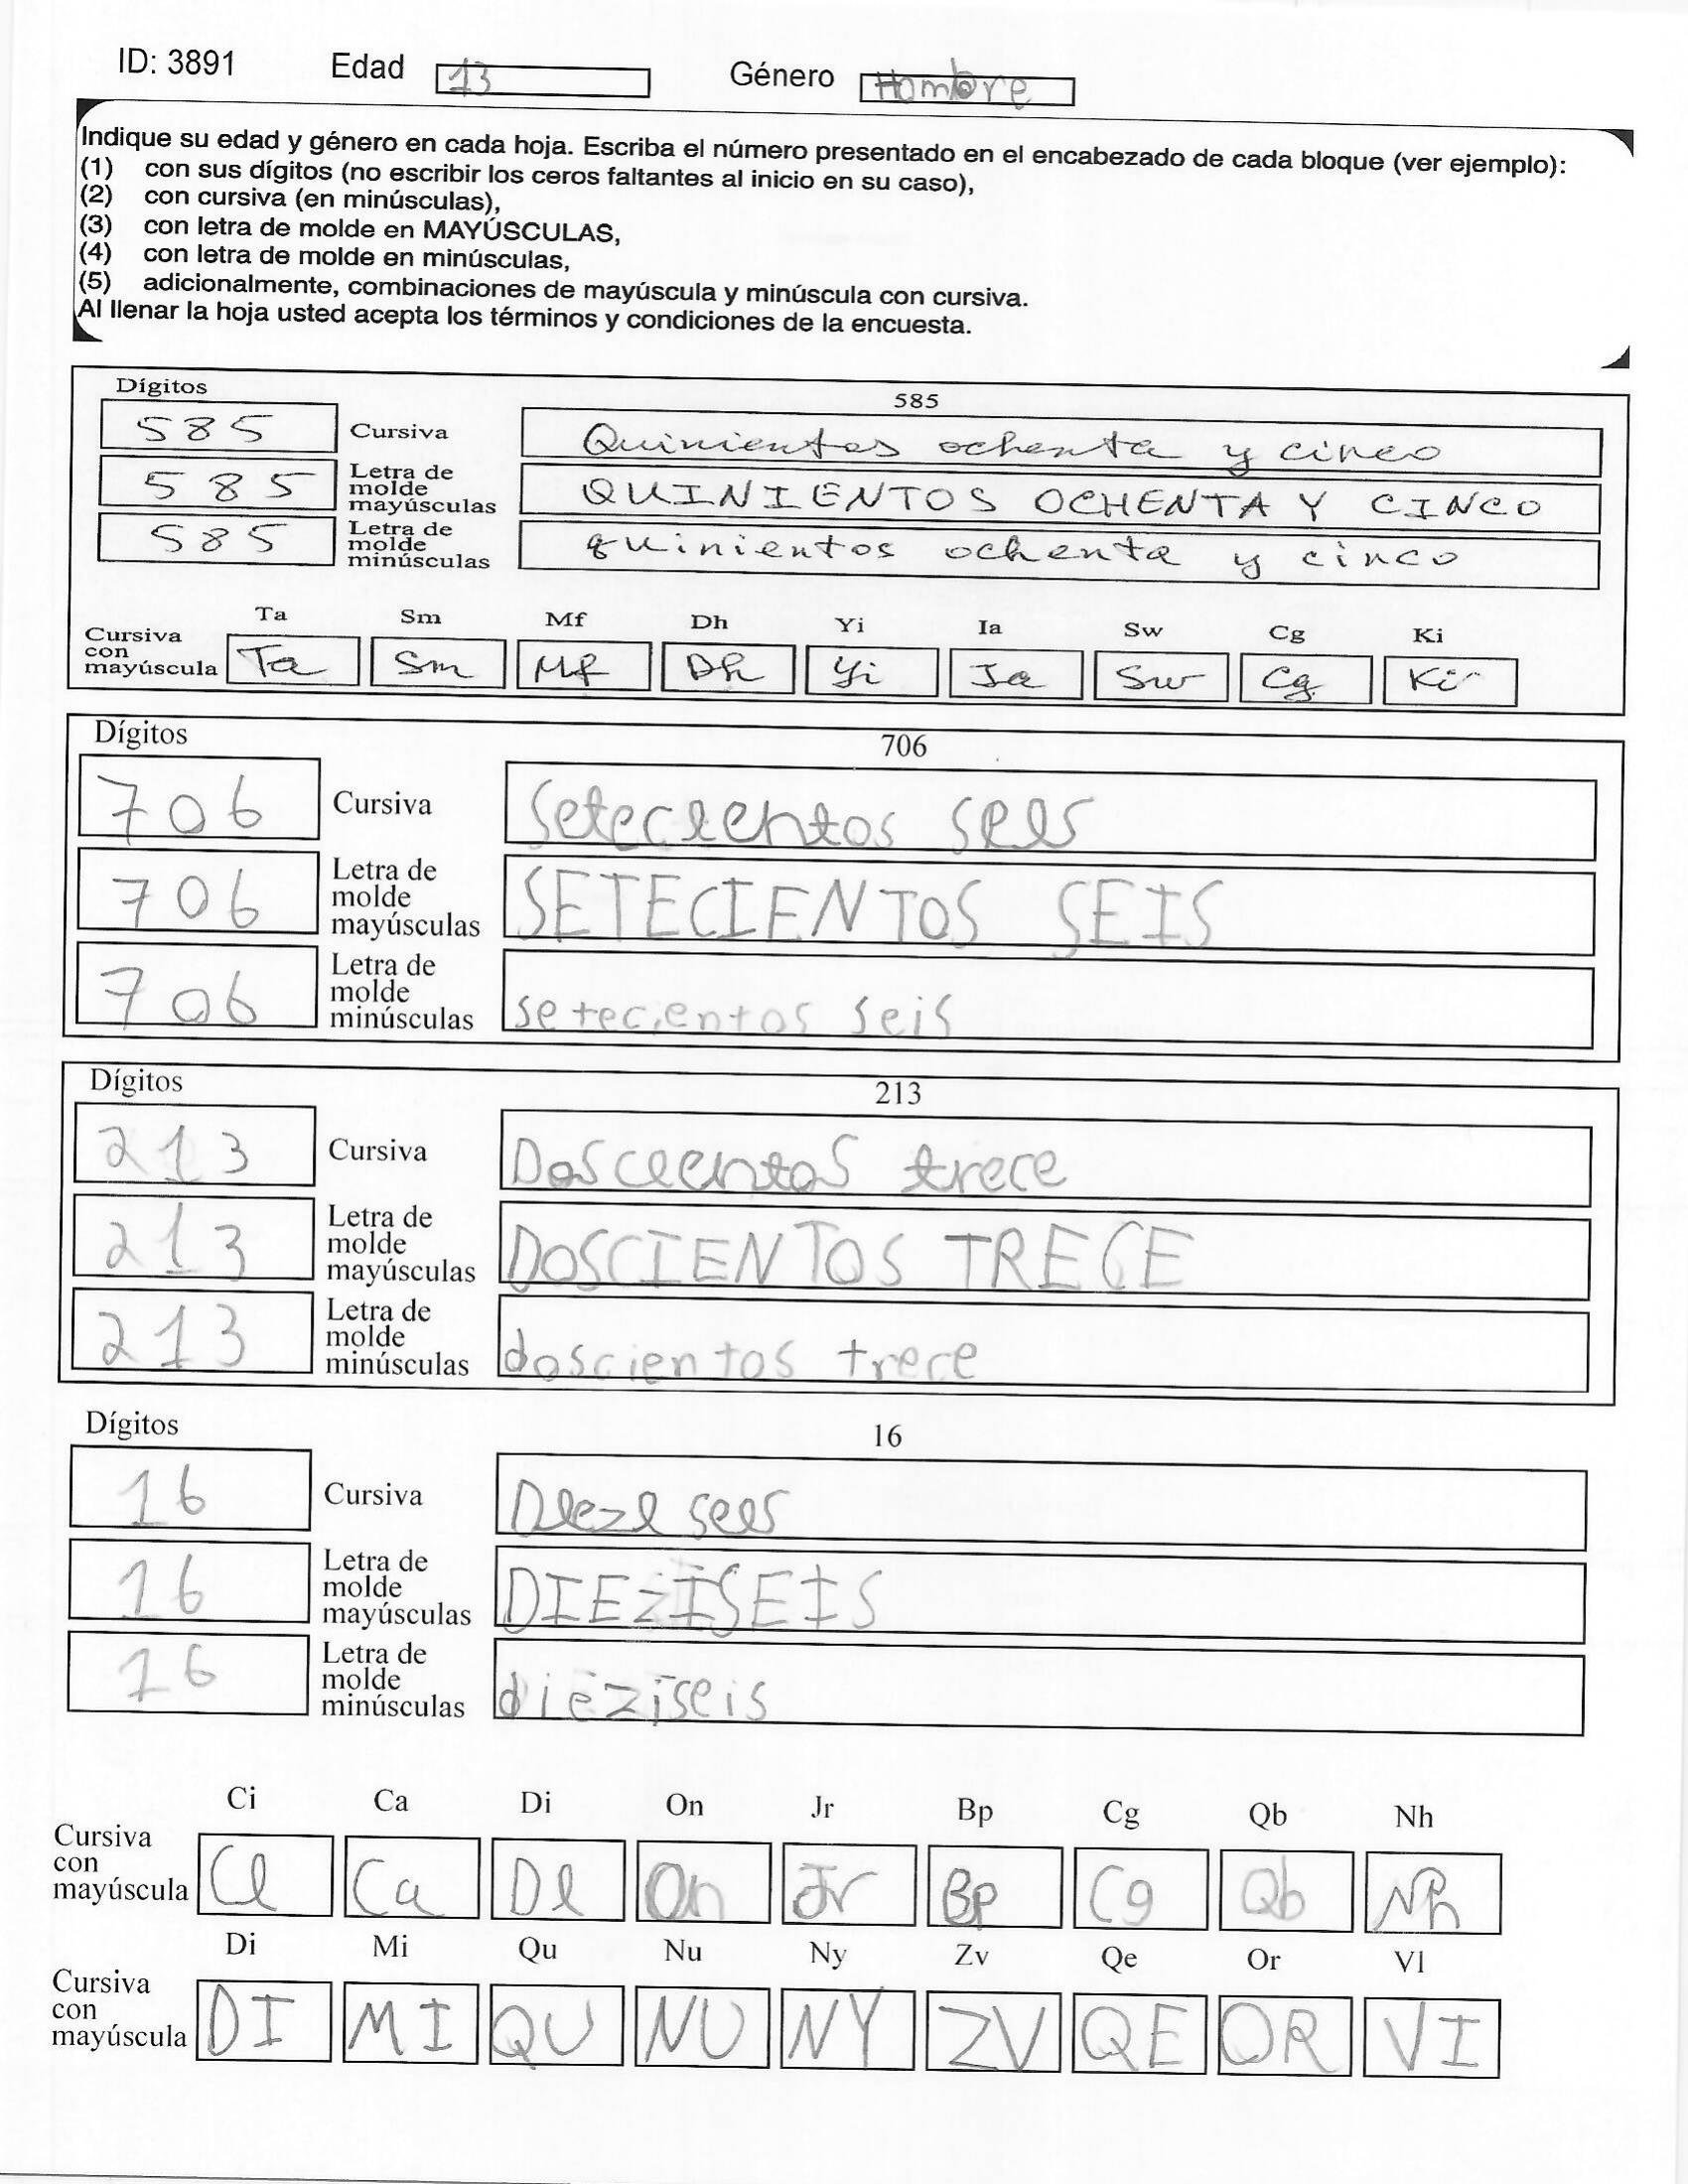 ID: 3891 Edad 13 Género Hombre
Indique su edad y género en cada hoja. Escriba el número presentado en el encabezado de cada bloque (ver ejemplo):
(1) con sus dígitos (no escribir los ceros faltantes al inicio en su caso),
(2) con cursiva (en minúsculas),
(3) con letra de molde en MAYÚSCULAS,
(4) con letra de molde en minúsculas,
(5) adicionalmente, combinaciones de mayúscula y minúscula con cursiva.
Al llenar la hoja usted acepta los términos y condiciones de la encuesta.
Dígitos 585
585 Cursiva Quinientos ochenta y cinco
585 Letra de molde mayúsculas QUINIENTOS OCHENTA Y CINCO
585 Letra de molde minúsculas quinientos ochenta y cinco
Ta Sm Mf Dh Yi Ia Sw Cg Ki
Cursiva con mayúscula Ta Sm Mf Dh Yi Ia Sw Cg Ki
Dígitos 706
706 Cursiva Setecientos seis
706 Letra de molde mayúsculas SETECIENTOS SEIS
706 Letra de molde minúsculas setecientos seis
Dígitos 213
213 Cursiva Doscientos trece
213 Letra de molde mayúsculas DOSCIENTOS TRECE
213 Letra de molde minúsculas doscientos trece
Dígitos 16
16 Cursiva Diezi seis
16 Letra de molde mayúsculas DIEZISEIS
16 Letra de molde minúsculas dieziseis
Ci Ca Di On Jr Bp Cg Qb Nh
Cursiva con mayúscula Ci Ca Di On Jr Bp Cg Qb Nh
Di Mi Qu Nu Ny Zv Qe Or Vl
Cursiva con mayúscula DI MI QU NU NY ZV QE OR VI